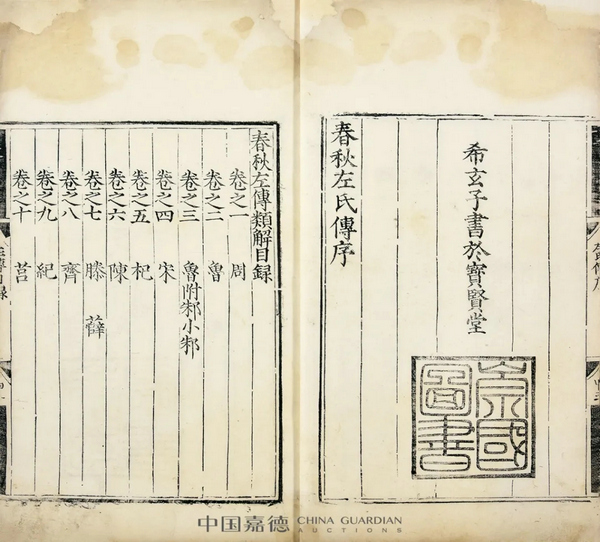 希玄子書於寶賢堂
崇國
圖書
春秋左氏傳序
春秋左傳類解目録
卷之一 周
卷之二 魯
卷之三 魯附邾小邾
卷之四 宋
卷之五 杞
卷之六 陳
卷之七 滕 薛
卷之八 齊
卷之九 紀
卷之十 莒
中国嘉德 CHINA GUARDIAN
AUCTIONS